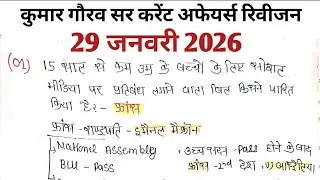 कुमार गौरव सर करेंट अफेयर्स रिवीजन
29 जनवरी 2026
(01) 15 साल से कम उम्र के बच्चों के लिए सोशल
मीडिया पर प्रतिबंध लगाने वाला बिल किसने पारित
किया है:- फ्रांस
फ्रांस - राष्ट्रपति - इमैनुएल मैक्रोन
National Assembly
Bill - Pass
उच्च सदन - pass होने के बाद
फ्रांस - 2nd देश